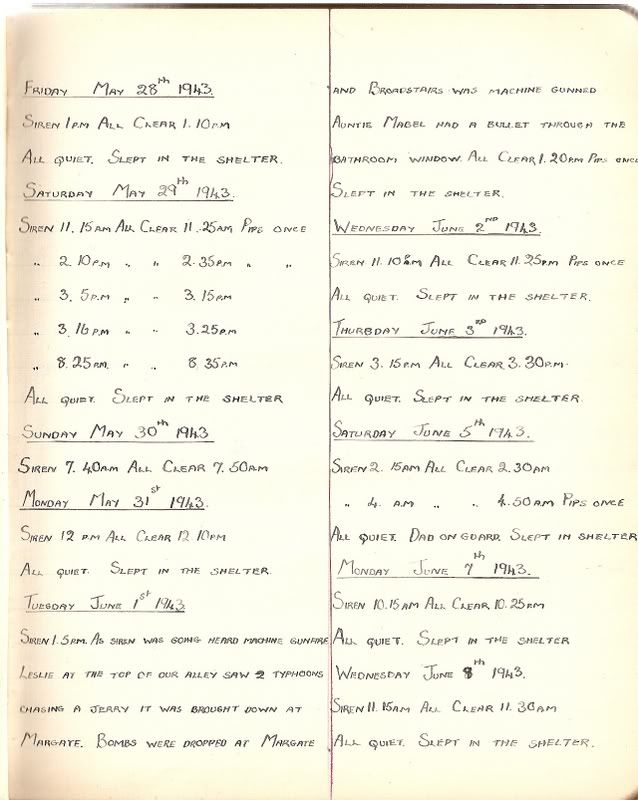 FRIDAY MAY 28TH 1943.
SIREN 1PM ALL CLEAR 1.10PM
ALL QUIET. SLEPT IN THE SHELTER.
SATURDAY MAY 29TH 1943.
SIREN 11.15AM ALL CLEAR 11.25AM PIPS ONCE
" 2.10PM " " 2.35PM " "
" 3.5PM " " 3.15PM
" 3.16PM " " 3.25PM
" 8.25PM " " 8.35PM
ALL QUIET. SLEPT IN THE SHELTER
SUNDAY MAY 30TH 1943
SIREN 7.40AM ALL CLEAR 7.50AM
MONDAY MAY 31ST 1943.
SIREN 12 PM ALL CLEAR 12.10PM
ALL QUIET. SLEPT IN THE SHELTER.
TUESDAY JUNE 1ST 1943
SIREN 1.5PM. AS SIREN WAS GOING HEARD MACHINE GUNFIRE
LESLIE AT THE TOP OF OUR ALLEY SAW 2 TYPHOONS
CHASING A JERRY IT WAS BROUGHT DOWN AT
MARGATE. BOMBS WERE DROPPED AT MARGATE
AND BROADSTAIRS WAS MACHINE GUNNED
AUNTIE MABEL HAD A BULLET THROUGH THE
BATHROOM WINDOW. ALL CLEAR 1.20PM PIPS ONCE
SLEPT IN THE SHELTER.
WEDNESDAY JUNE 2ND 1943.
SIREN 11.10PM ALL CLEAR 11.25PM PIPS ONCE
ALL QUIET. SLEPT IN THE SHELTER.
THURSDAY JUNE 3RD 1943.
SIREN 3.15PM ALL CLEAR 3.30PM.
ALL QUIET. SLEPT IN THE SHELTER.
SATURDAY JUNE 5TH 1943.
SIREN 2.15AM ALL CLEAR 2.30AM
" 4. AM " " 4.50AM PIPS ONCE
ALL QUIET. DAD ON GUARD. SLEPT IN SHELTER
MONDAY JUNE 7TH 1943.
SIREN 10.15AM ALL CLEAR 10.25PM
ALL QUIET. SLEPT IN THE SHELTER
WEDNESDAY JUNE 8TH 1943.
SIREN 11.15AM ALL CLEAR 11.30AM
ALL QUIET. SLEPT IN THE SHELTER.